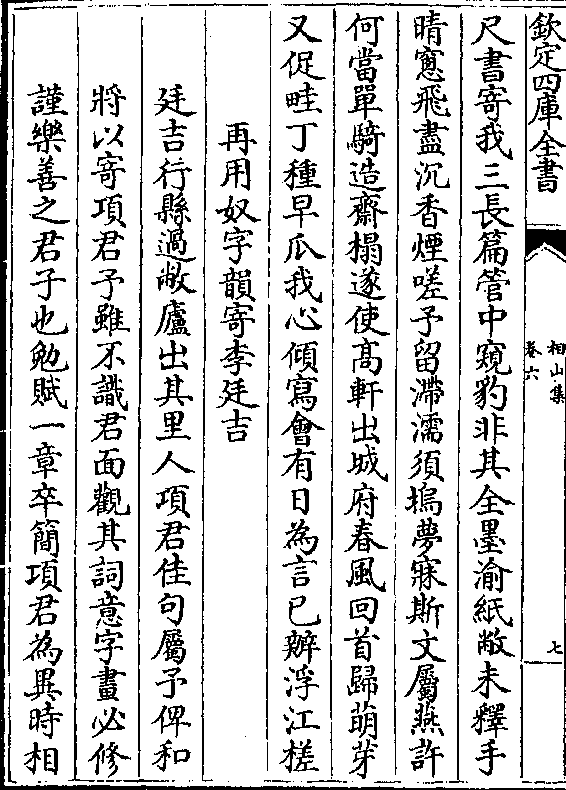 欽定四庫全書
相山集
卷六
七
尺書寄我三長篇管中窺豹非其全墨渝紙敝未釋手
晴窻飛盡沉香煙嗟予留滯濡須塢夢寐斯文屬燕許
何當單騎造齋榻遂使髙軒出城府春風回首歸萌芽
又促畦丁種早瓜我心傾寫會有日為言已辦浮江槎
再用奴字韻寄李廷吉
廷吉行縣過敝廬出其里人項君佳句屬予俾和
將以寄項君予雖不識君面觀其詞意字畫必修
謹樂善之君子也勉賦一章卒簡項君為異時相